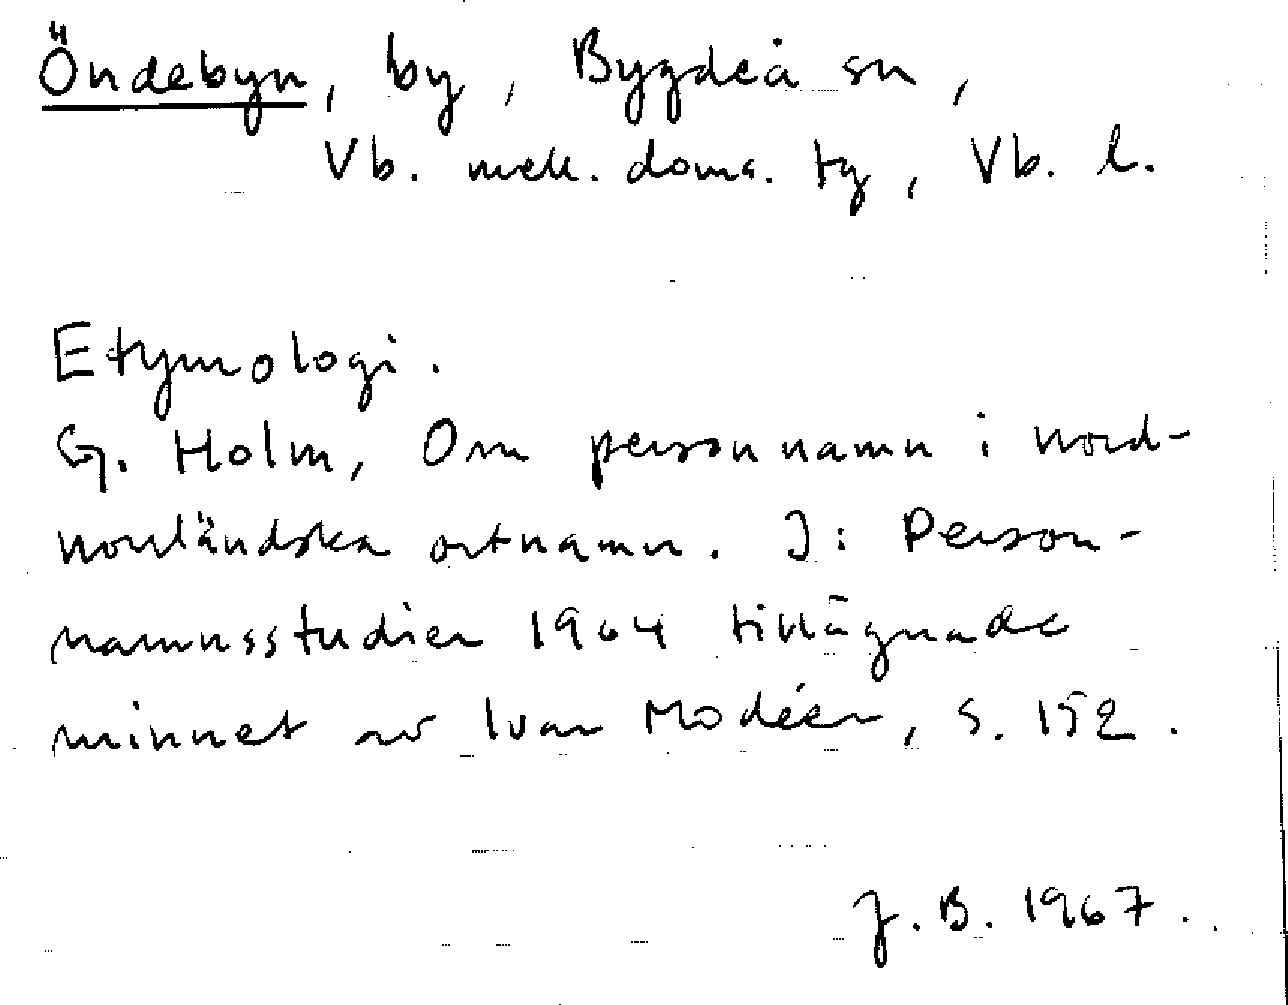 Öndebyn, by, Bygdeå sn,
Vb. mell. doms. tg, Vb. l.
Etymologi.
G. Holm, Om personnamn i nord-
norrländska ortnamn. I: Person-
namnsstudier 1964 tillägnade
minnet av Ivar Modéer, s. 152.
J.B. 1967.